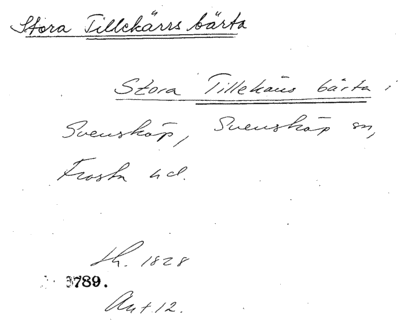 Stora Tillekärrs bärta
Stora Tillekärrs bärta i
Svensköp, Svensköp sn,
Frosta hd.
Lh. 1828
3789.
Ant 12.